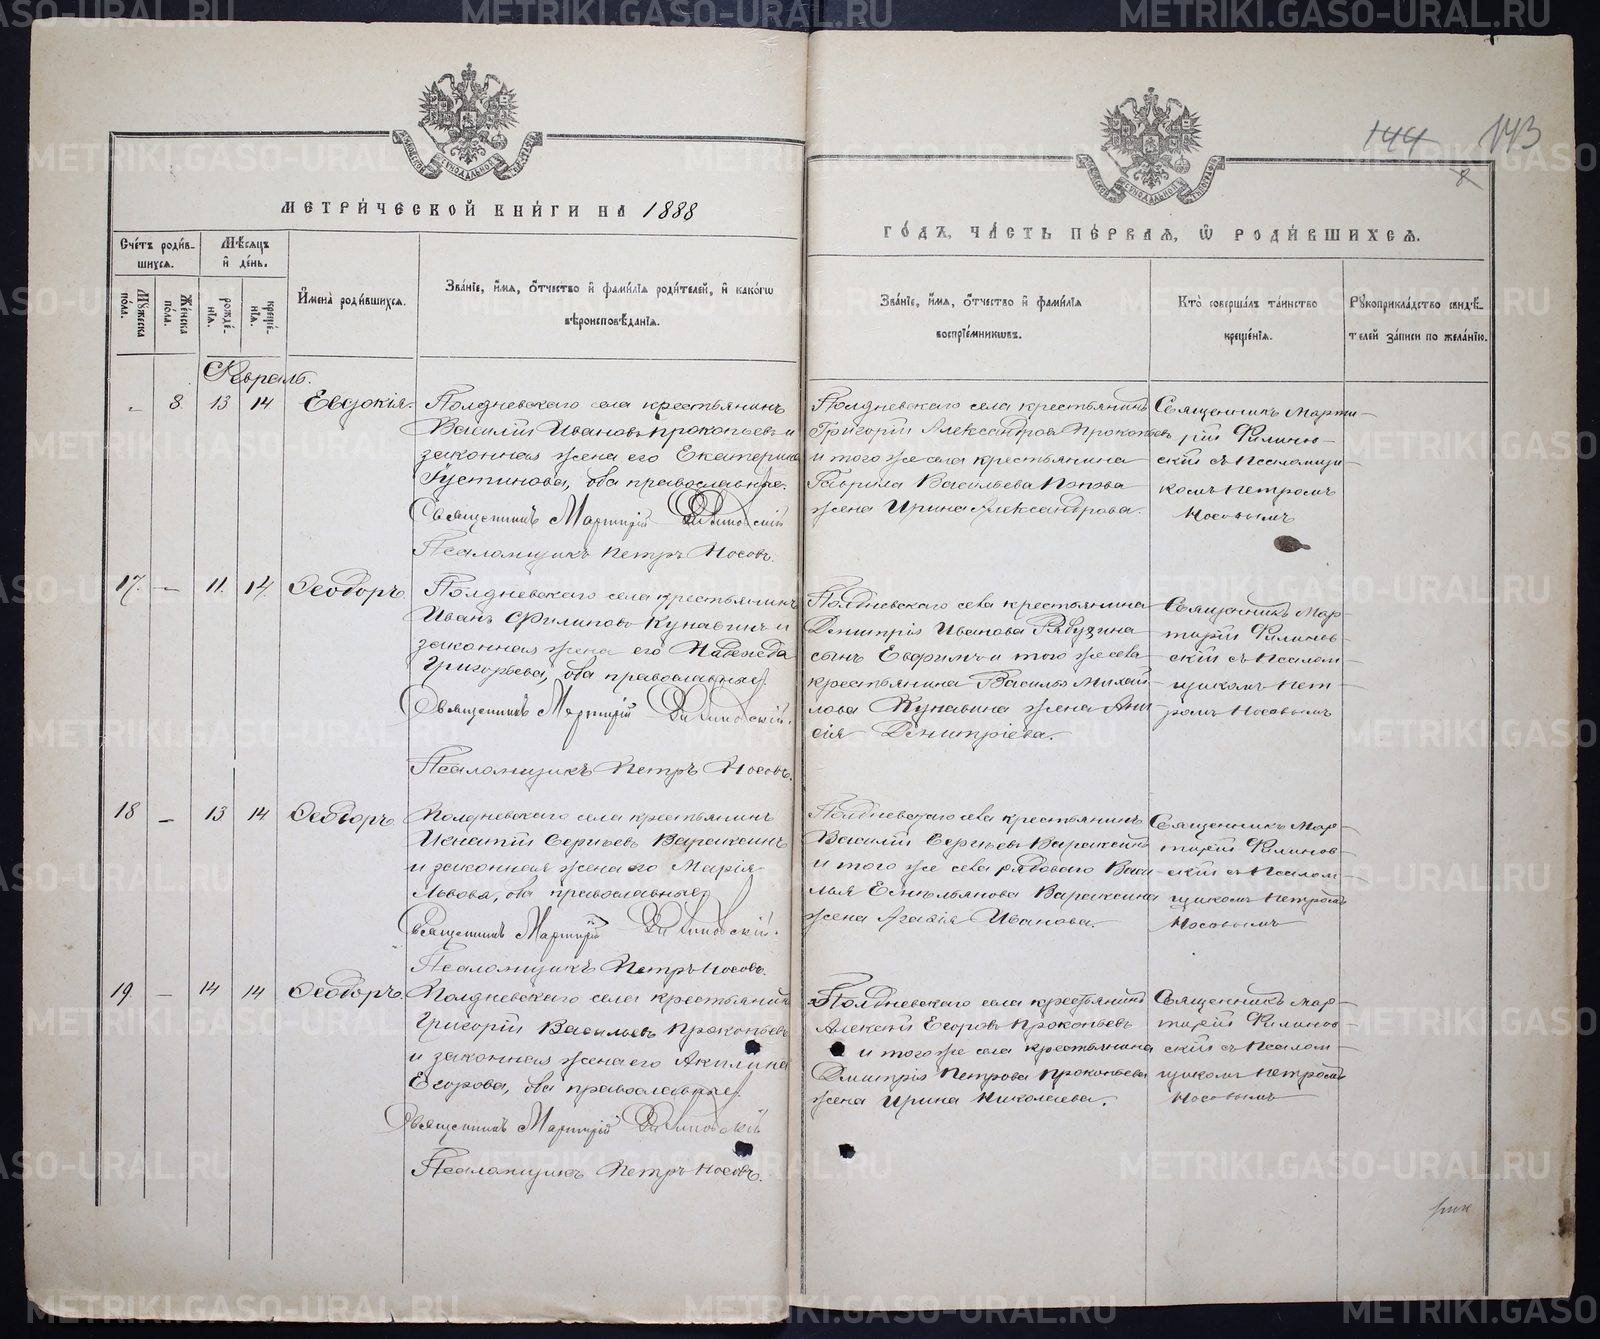 144 143
8
МЕТРИЧЕСКОЙ КНИГИ НА 1888
ГОДЪ, ЧАСТЬ ПЕРВАЯ, Ѿ РОДИВШИХСЯ.
Счетъ родив-
шихся.
Мѣсяцъ
и день.
Мужеска
пола.
Женска
пола.
рожде-
нія.
креще-
нія.
Имена родившихся.
Званіе, имя, отчество и фамилія родителей, и какогѡ
вѣроисповѣданія.
Званіе, имя, отчество и фамилія
воспріемниковъ.
Кто совершалъ таинство
крещенія.
Рукоприкладство свидѣ-
телей записи по желанію.
Февраль.
„ 8. 13 14 Евдокія.
Полдневскаго села крестьянинъ
Василій Ивановъ Прокопьевъ и
законная жена его Екатерина
Густинова, оба православные.
Священникъ Мартирій Филиновскій
Псаломщикъ Петръ Носовъ.
Полдневскаго села крестьянинъ
Григорій Александровъ Прокопьевъ
и того же села крестьянина
Гаврила Васильева Попова
жена Ирина Александрова.
Священникъ Марти-
рій Филинов-
скій съ Псаломщи-
комъ Петромъ
Носовымъ
17. — 11. 14. Ѳеодоръ.
Полдневскаго села крестьянинъ
Иванъ Филиповъ Кунавинъ и
законная жена его Надежда
Григорьева, оба православные.
Священникъ Мартирій Филиновскій.
Псаломщикъ Петръ Носовъ.
Полдневскаго села крестьянина
Димитрія Иванова Рябузина
сынъ Евфимъ и того же села
крестьянина Василья Михай-
лова Кунавина жена Ани-
сія Димитріева.
Священникъ Мар-
тирій Филинов-
скій съ Псалом-
щикомъ Пет-
ромъ Носовымъ
18 — 13 14 Ѳеодоръ.
Полдневскаго села крестьянинъ
Игнатій Сергѣевъ Вараксинъ
и законная жена его Марія
Львова, оба православные.
Священникъ Мартирій Филиновскій.
Псаломщикъ Петръ Носовъ.
Полдневскаго села крестьянинъ
Василій Сергѣевъ Вараксинъ
и того же села рядоваго Васи-
лья Емельянова Вараксина
жена Агафія Иванова.
Священникъ Мар-
тирій Филинов-
скій съ Псалом-
щикомъ Петромъ
Носовымъ
19. — 14 14 Ѳеодоръ.
Полдневскаго села крестьянинъ
Григорій Васильевъ Прокопьевъ
и законная жена его Акилина
Егорова, оба православные.
Священникъ Мартирій Филиновскій
Псаломщикъ Петръ Носовъ.
Полдневскаго села крестьянинъ
Алексѣй Егоровъ Прокопьевъ
и того же села крестьянина
Дмитрія Петрова Прокопьева
жена Ирина Николаева.
Священникъ Мар-
тирій Филинов-
скій съ Псалом-
щикомъ Петромъ
Носовымъ
METRIKI.GASO-URAL.RU